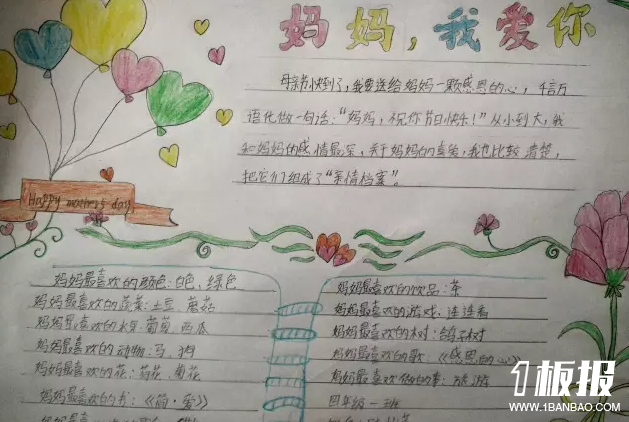 妈妈，我爱你
母亲节快到了，我要送给妈妈一颗感恩的心，千言万
语化做一句话：“妈妈，祝你节日快乐！”从小到大，我
和妈妈的感情最深，关于妈妈的喜爱，我也比较清楚，
把它们组成了“亲情档案”。
Happy mothers day
妈妈最喜欢的颜色：白色、绿色
妈妈最喜欢的蔬菜：土豆 蘑菇
妈妈最喜欢的水果：葡萄 西瓜
妈妈最喜欢的动物：马、狗
妈妈最喜欢的花：荷花、菊花
妈妈最喜欢的书：《简·爱》
妈妈最喜欢的饮品：茶
妈妈最喜欢的游戏：连连看
妈妈最喜欢的树：鸽子树
妈妈最喜欢的歌：《感恩的心》
妈妈最喜欢做的事：旅游
四年级一班
1板报
WWW.1BANBAO.COM